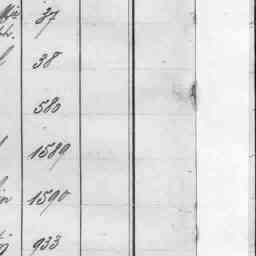 37
38
580
1589
1590
933